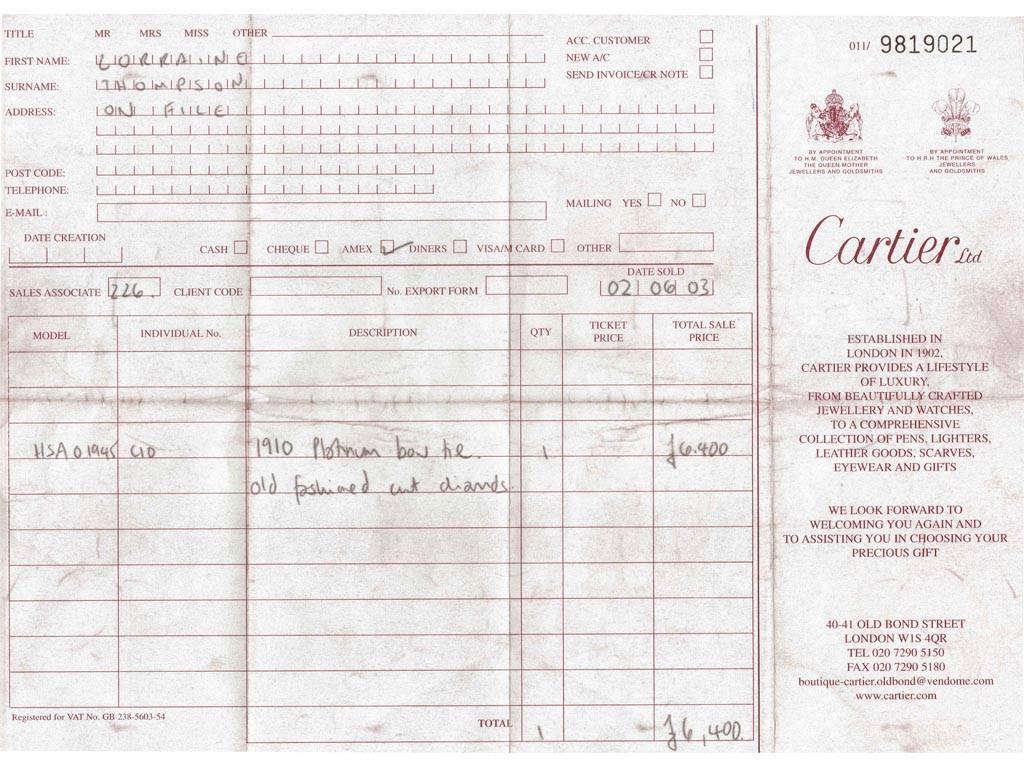 TITLE MR MRS MISS OTHER
FIRST NAME: LORRAINE
SURNAME: THOMPSON
ADDRESS: ON FILE
POST CODE:
TELEPHONE:
E-MAIL :
ACC. CUSTOMER
NEW A/C
SEND INVOICE/CR NOTE
MAILING YES NO
DATE CREATION
CASH CHEQUE AMEX DINERS VISA/M CARD OTHER
SALES ASSOCIATE 226. CLIENT CODE No. EXPORT FORM
DATE SOLD
02 06 03
MODEL INDIVIDUAL No. DESCRIPTION QTY TICKET PRICE TOTAL SALE PRICE
HSA01945 C10 1910 Platinum bow tie. 1 £6.400
old fashioned cut diamds
Registered for VAT No. GB 238-5603-54
TOTAL 1 £6,400.
011/ 9819021
BY APPOINTMENT
TO H.M. QUEEN ELIZABETH
THE QUEEN MOTHER
JEWELLERS AND GOLDSMITHS
BY APPOINTMENT
TO H.R.H THE PRINCE OF WALES
JEWELLERS
AND GOLDSMITHS
Cartier Ltd
ESTABLISHED IN
LONDON IN 1902,
CARTIER PROVIDES A LIFESTYLE
OF LUXURY,
FROM BEAUTIFULLY CRAFTED
JEWELLERY AND WATCHES,
TO A COMPREHENSIVE
COLLECTION OF PENS, LIGHTERS,
LEATHER GOODS, SCARVES,
EYEWEAR AND GIFTS
WE LOOK FORWARD TO
WELCOMING YOU AGAIN AND
TO ASSISTING YOU IN CHOOSING YOUR
PRECIOUS GIFT
40-41 OLD BOND STREET
LONDON W1S 4QR
TEL 020 7290 5150
FAX 020 7290 5180
boutique-cartier.oldbond@vendome.com
www.cartier.com